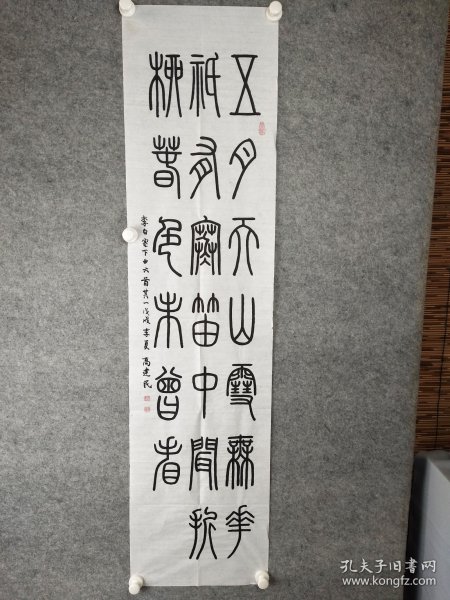 五月天山雪無華
祇有寒笛中聞折
柳春色未曾看
李白塞下曲六首其一戊戌季夏 高建民
孔夫子旧书网
www.kongfz.com